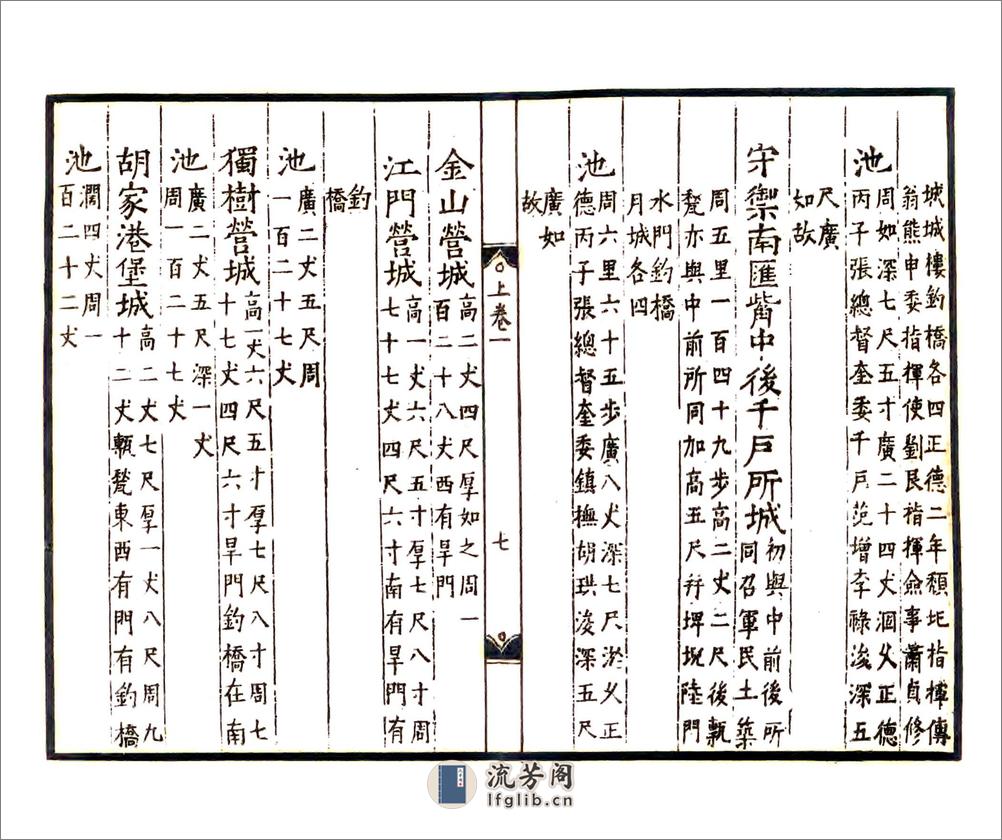 城城樓釣橋各四正德二年頽圯指揮傳
翁熊申委指揮使劉艮指揮僉事蕭貞修
池
周如深七尺五寸廣二十四丈涸乂正德
丙子張總督奎委千戶范增李祿浚深五
尺廣
如故
守禦南匯觜中後千戶所城
初與中前後所
同召軍民土築
周五里一百四十九步高二丈二尺後甎
甃亦與中前所同加高五尺幷埤堄陸門
水門釣橋
月城各四
池
周六里六十五步廣八丈深七尺淤乂正
德丙子張總督奎委鎮撫胡珙浚深五尺
廣如
故
上卷一
七
金山營城
高二丈四尺厚如之周一
百二十八丈西有旱門
江門營城
高一丈六尺五寸厚七尺八寸周
七十七丈四尺六寸南有旱門有
釣
橋
池
廣二丈五尺周
一百二十七丈
獨樹營城
高一丈六尺五寸厚七尺八寸周七
十七丈四尺六寸旱門釣橋在南
池
廣二丈五尺深一丈
周一百二十七丈
胡家港堡城
高二丈七尺厚一丈八尺周九
十二丈甎甃東西有門有釣橋
池
濶四丈周一
百二十二丈
流芳阁
lfglib.cn